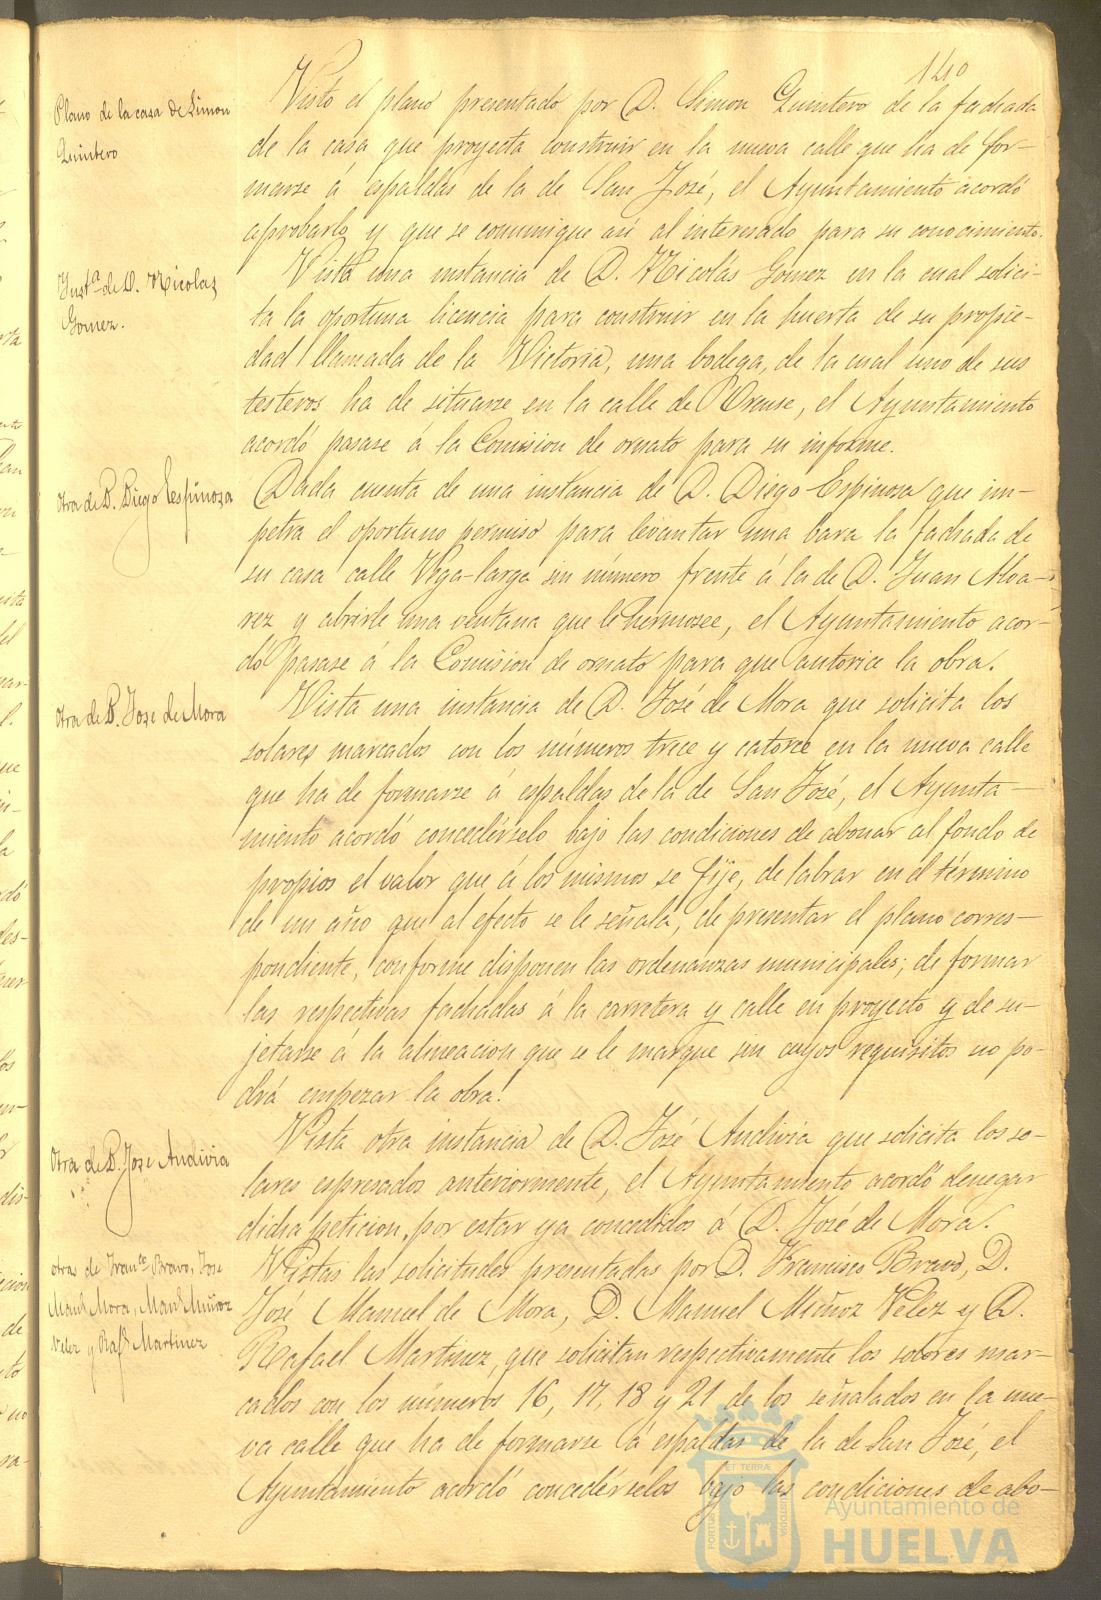 140
Plano de la casa de Simon
Quintero
Visto el plano presentado por D. Simon Quintero de la fachada
de la casa que proyecta construir en la nueva calle que ha de for-
marse á espaldas de la de San José, el Ayuntamiento acordó
aprobarlo y que se comunique asi al interesado para su conocimiento.
Insta de D. Nicolas
Gomez.
Vista una instancia de D. Nicolás Gomez en la cual solici-
ta la oportuna licencia para construir en la huerta de su propie-
dad llamada de la Victoria, una bodega, de la cual uno de sus
testeros ha de situarse en la calle de Orense, el Ayuntamiento
acordó pasase á la Comision de ornato para su informe.
Otra de D. Diego Espinosa
Dada cuenta de una instancia de D. Diego Espinosa que im-
petra el oportuno permiso para levantar una bara la fachada de
su casa calle Vega-larga sin número frente á la de D. Juan Alva-
rez y abrirle una ventana que le hermosee, el Ayuntamiento acor-
dó pasase á la Comision de ornato para que autorice la obra.
Otra de D. Jose de Mora
Vista una instancia de D. José de Mora que solicita los
solares marcados con los números trece y catorce en la nueva calle
que ha de formarse á espaldas de la de San José, el Ayunta-
miento acordó concedérselo bajo las condiciones de abonar al fondo de
propios el valor que á los mismos se fije, de labrar en el término
de un año que al efecto se le señala, de presentar el plano corres-
pondiente, conforme disponen las ordenanzas municipales; de formar
las respectivas fachadas á la carretera y calle en proyecto y de su-
jetarse á la alineacion que se le marque sin cuyos requisitos no po-
drá empezar la obra.
Otra de D. Jose Andivia
Vista otra instancia de D. José Andivia que solicita los so-
lares espresados anteriormente, el Ayuntamiento acordó denegar
dicha peticion, por estar ya concedidos á D. José de Mora.
Otras de Franco Bravo, Jose
Manl Mora, Manl Muñoz
Velez y Rafl Martinez
Vistas las solicitudes presentadas por D. Francisco Bravo, D.
José Manuel de Mora, D. Manuel Muñoz Velez y D.
Rafael Martinez, que solicitan respectivamente los solares mar-
cados con los números 16, 17, 18 y 21 de los señalados en la nue-
va calle que ha de formarse á espaldas de la de San José, el
Ayuntamiento acordó concedérselos bajo las condiciones de abo-
PORTUS MARIS ET TERRÆ CUSTODIA
Ayuntamiento de
HUELVA